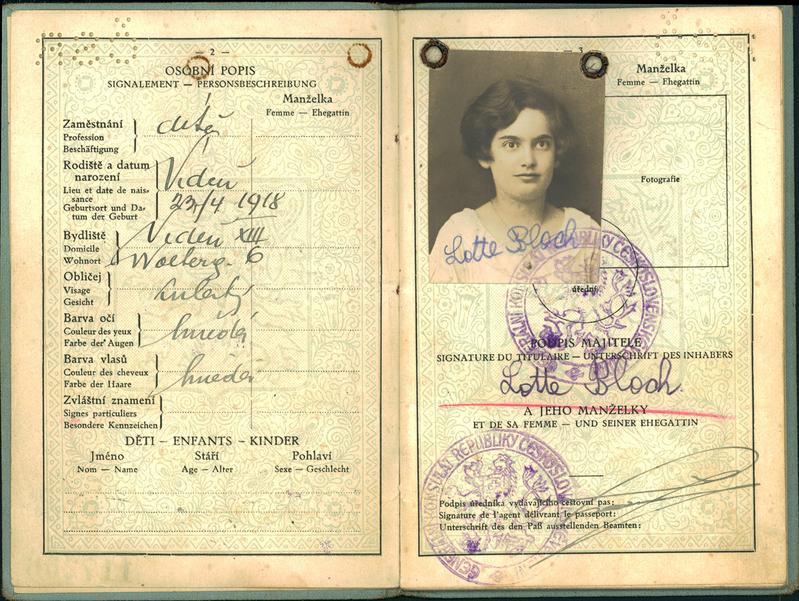 — 2 —
OSOBNÍ POPIS
SIGNALEMENT — PERSONSBESCHREIBUNG
Manželka
Femme — Ehegattin
Zaměstnání
Profession
Beschäftigung
dítě
Rodiště a datum
narození
Lieu et date de nais-
sance
Geburtsort und Da-
tum der Geburt
Vídeň
23/4 1918
Bydliště
Domicile
Wohnort
Vídeň XIII
6
Obličej
Visage
Gesicht
kulatý
Barva očí
Couleur des yeux
Farbe der Augen
hnědá
Barva vlasů
Couleur des cheveux
Farbe der Haare
hnědá
Zvláštní znamení
Signes particuliers
Besondere Kennzeichen
DĚTI — ENFANTS — KINDER
Jméno Stáří Pohlaví
Nom — Name Age — Alter Sexe — Geschlecht
3
Manželka
Femme — Ehegattin
Fotografie
Lotte Bloch
úřední
REPUBLIKY ČESKOSLOVENSKÉ
PODPIS MAJITELE
SIGNATURE DU TITULAIRE — UNTERSCHRIFT DES INHABERS
Lotte Bloch.
A JEHO MANŽELKY
ET DE SA FEMME — UND SEINER EHEGATTIN
GENERÁLNÍ KONSULÁT REPUBLIKY ČESKOSLOVENSKÉ
Podpis úředníka vydávajícího cestovní pas:
Signature de l'agent délivrant le passeport:
Unterschrift des den Paß ausstellenden Beamten: